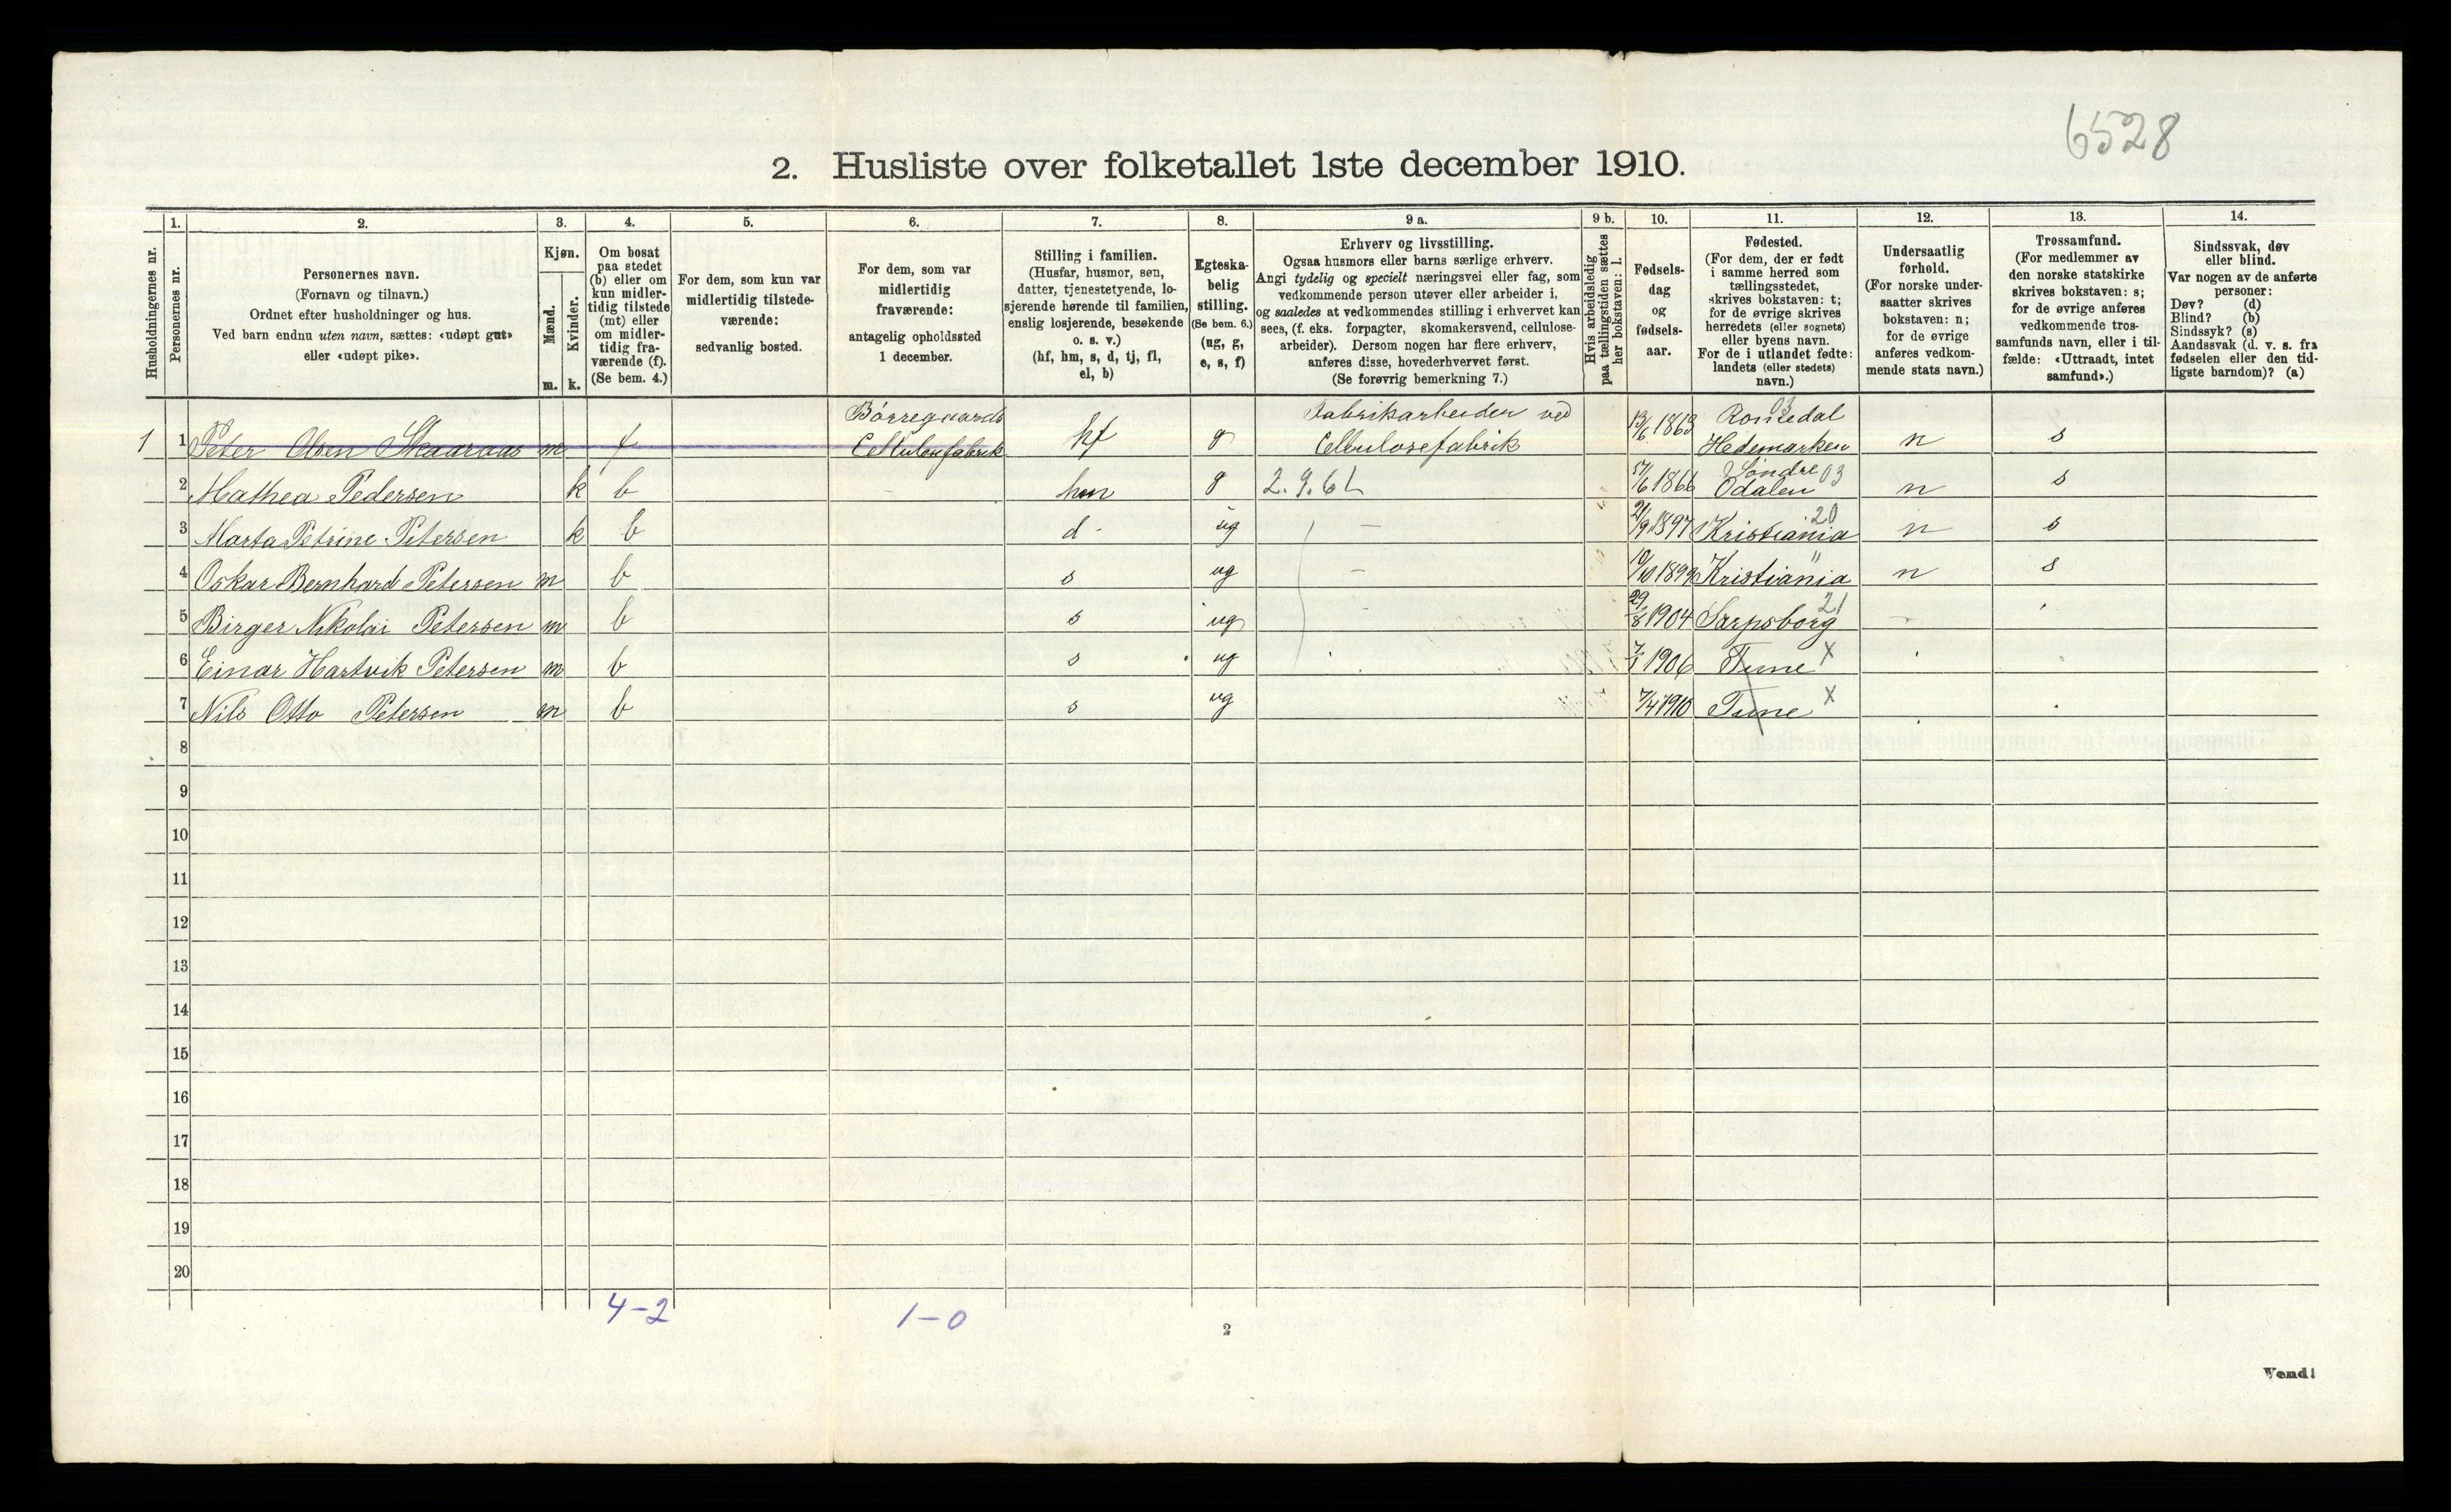 6528
2. Husliste over folketallet 1ste december 1910.
Husholdningernes nr.
1.
Personernes nr.
2.
Personernes navn.
(Fornavn og tilnavn.)
Ordnet efter husholdninger og hus.
Ved barn endnu uten navn, sættes: «udøpt gut»
eller «udøpt pike».
3.
Kjøn.
Mænd.
Kvinder.
m. k.
4.
Om bosat
paa stedet
(b) eller om
kun midler-
tidig tilstede
(mt) eller
om midler-
tidig fra-
værende (f).
(Se bem. 4.)
5.
For dem, som kun var
midlertidig tilstede-
værende:
sedvanlig bosted.
6.
For dem, som var
midlertidig
fraværende:
antagelig opholdssted
1 december.
7.
Stilling i familien.
(Husfar, husmor, søn,
datter, tjenestetyende, lo-
sjerende hørende til familien,
enslig losjerende, besøkende
o. s. v.)
(hf, hm, s, d, tj, fl,
el, b)
8.
Egteska-
belig
stilling.
(Se bem. 6.)
(ug, g,
e, s, f)
9 a.
Erhverv og livsstilling.
Ogsaa husmors eller barns særlige erhverv.
Angi tydelig og specielt næringsvei eller fag, som
vedkommende person utøver eller arbeider i,
og saaledes at vedkommendes stilling i erhvervet kan
sees, (f. eks. forpagter, skomakersvend, cellulose-
arbeider). Dersom nogen har flere erhverv,
anføres disse, hovederhvervet først.
(Se forøvrig bemerkning 7.)
9 b.
Hvis arbeidsledig
paa tællingstiden sættes
her bokstaven: l.
10.
Fødsels-
dag
og
fødsels-
aar.
11.
Fødested.
(For dem, der er født
i samme herred som
tællingsstedet,
skrives bokstaven: t;
for de øvrige skrives
herredets (eller sognets)
eller byens navn.
For de i utlandet fødte:
landets (eller stedets)
navn.)
12.
Undersaatlig
forhold.
(For norske under-
saatter skrives
bokstaven: n;
for de øvrige
anføres vedkom-
mende stats navn.)
13.
Trossamfund.
(For medlemmer av
den norske statskirke
skrives bokstaven: s;
for de øvrige anføres
vedkommende tros-
samfunds navn, eller i til-
fælde: «Uttraadt, intet
samfund».)
14.
Sindssvak, døv
eller blind.
Var nogen av de anførte
personer:
Døv? (d)
Blind? (b)
Sindssyk? (s)
Aandssvak (d. v. s. fra
fødselen eller den tid-
ligste barndom)? (a)
1 1 Peter Olsen Skaaraas m f Borregaards Cellulosefabrik hf g Fabrikarbeider ved Cellulosefabrik 13/6 1863 Romedal Hedemarken 03 n s
2 Mathea Pedersen k b - hm g 2.9.6 L 1866 Søndre Odalen 03 n s
3 Marta Petrine Petersen k b d - ug - 21/9 1897 Kristiania 20 n s
4 Oskar Bernhard Petersen m b s ug - 10/10 1899 Kristiania " n s
5 Birger Nikolai Petersen m b s ug - 29/8 1904 Sarpsborg 21
6 Einar Hartvik Petersen m b s ug 7/1 1906 Tune x
7 Nils Otto Petersen m b s ug 7/4 1910 Tune x
8
9
10
11
12
13
14
15
16
17
18
19
20
4-2 1-0
2
Vend!